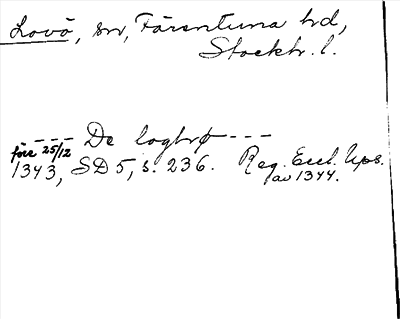 Lovö, sn, Färentuna hd,
Stockh. l.
--- De loghrø ---
före 25/12
1343, SD 5, s. 236. Reg. Eccl. Ups.
av 1344.